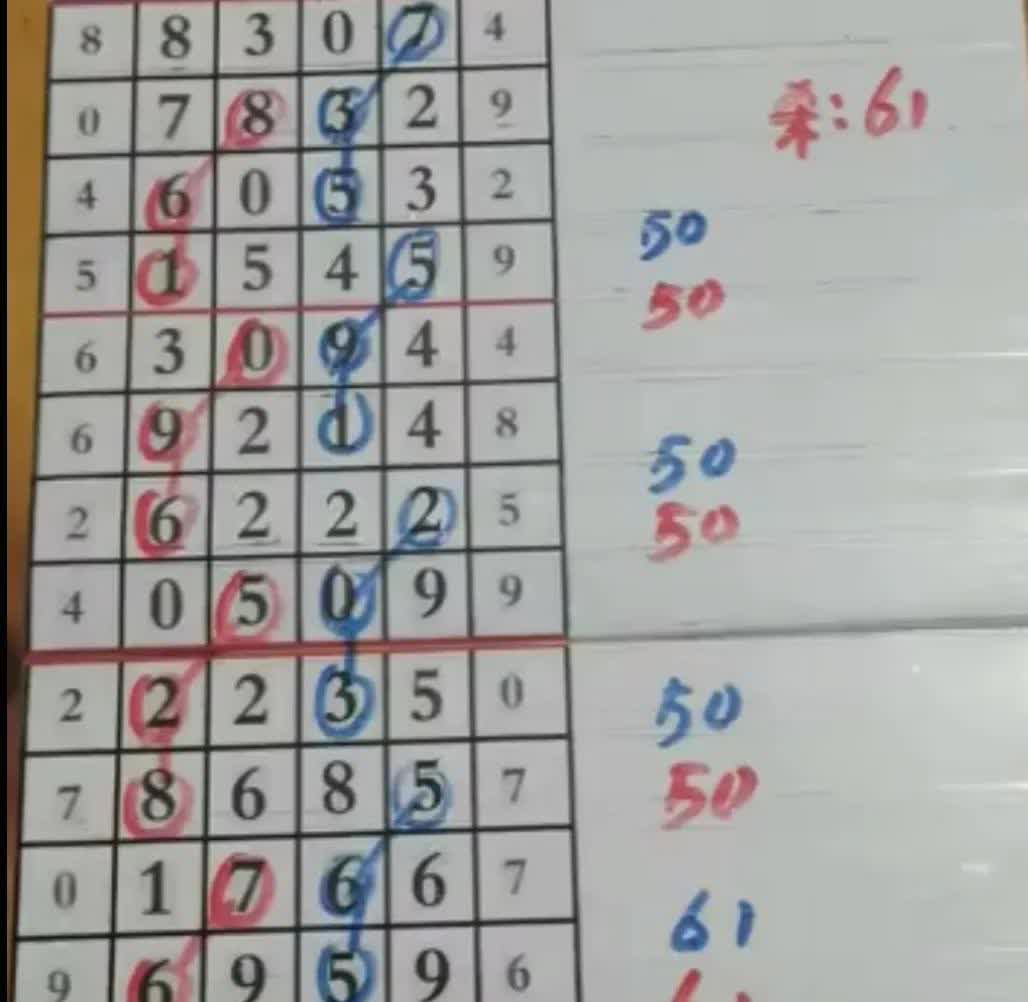 8 8 3 0 7 4
0 7 8 3 2 9
:61
4 6 0 5 3 2
50
5 1 5 4 5 9
50
6 3 0 9 4 4
6 9 2 1 4 8
50
2 6 2 2 2 5
50
4 0 5 0 9 9
2 2 2 3 5 0
50
7 8 6 8 5 7
50
0 1 7 6 6 7
61
9 6 9 5 9 6